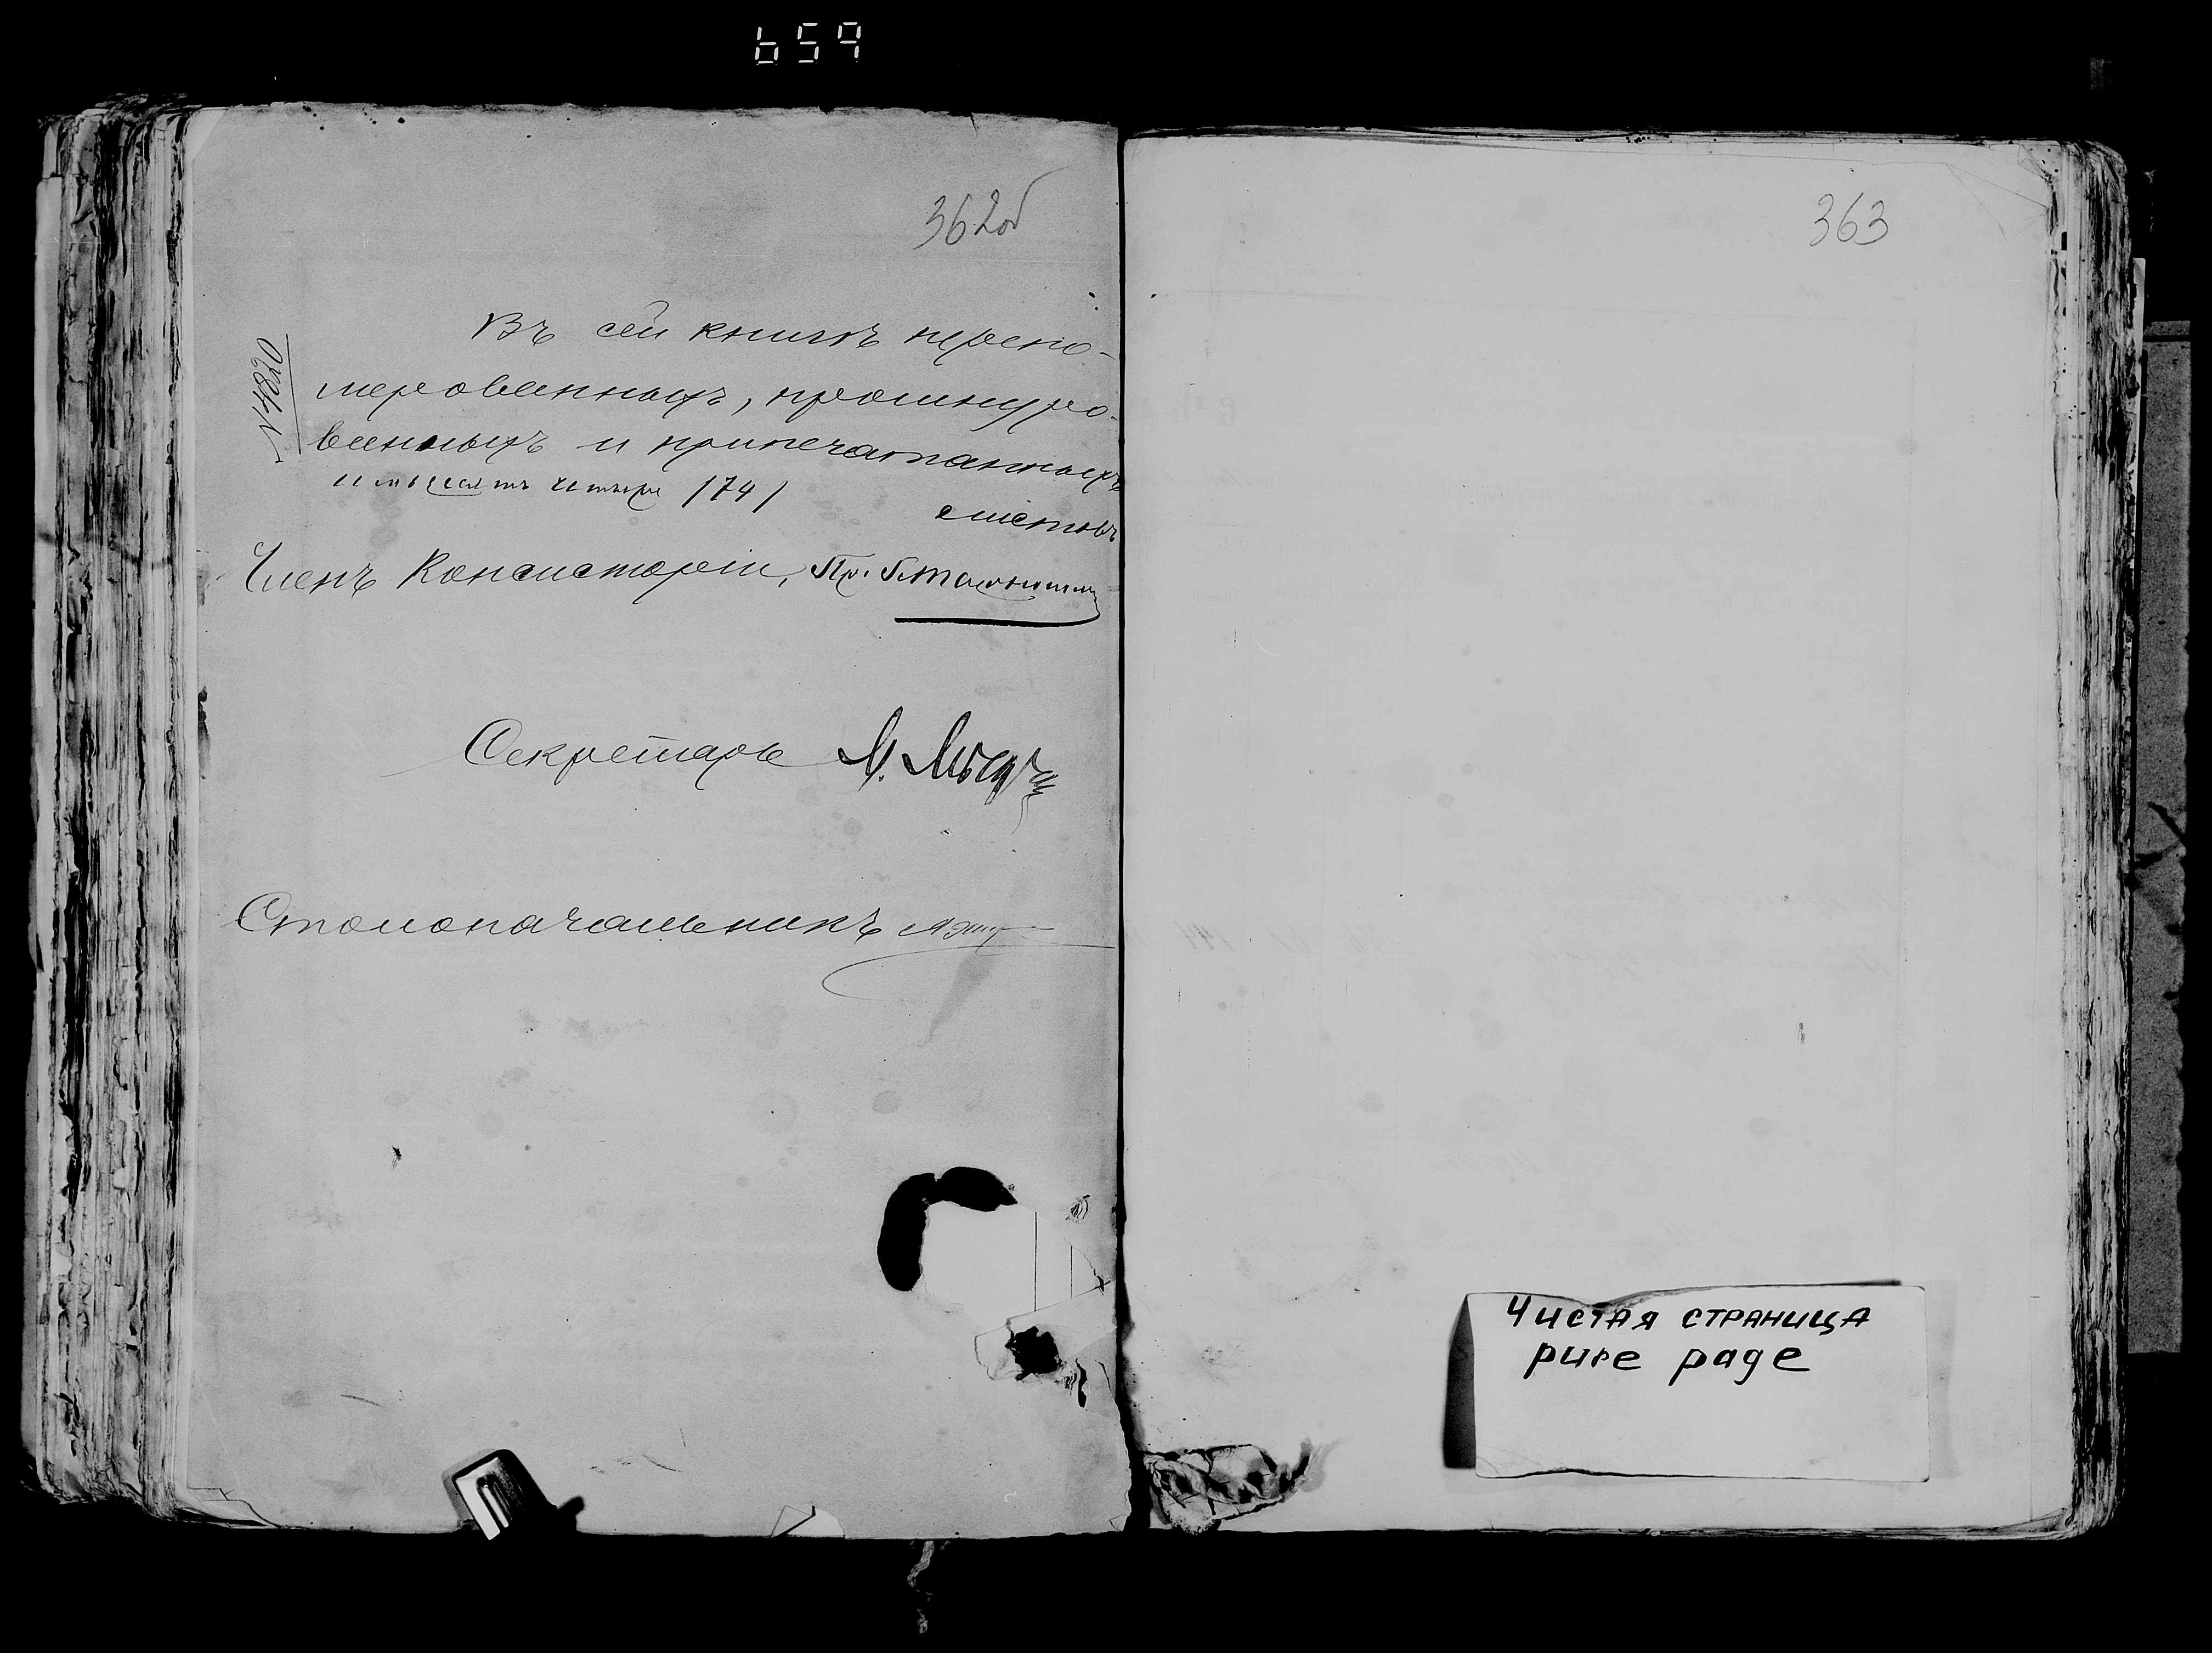 659
362об
№ 4820
Въ сей книгѣ перено-
мерованныхъ, прошнуро-
ванныхъ и припечатанныхъ
четыре /74/
листовъ
Членъ Консисторіи, Пр.
Секретарь
Столоначальникъ
363
Чистая страница
pure page